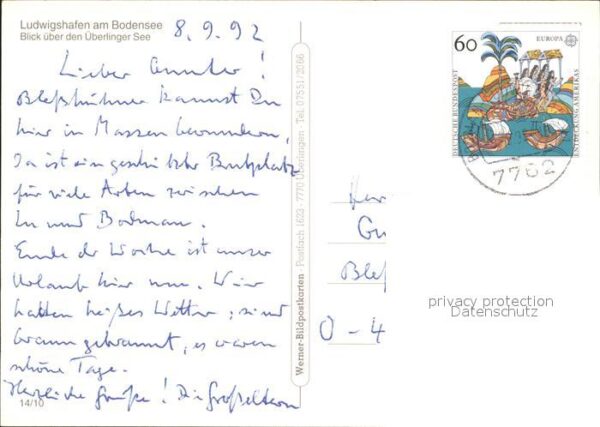 Ludwigshafen am Bodensee
Blick über den Überlinger See
8.9.92
Lieber !
Bleßhühner kannst Du
hier in Massen bewundern,
Da ist ein geschützter Brutplatz
für viele Arten zwischen
Lu und Bodman.
Ende der Woche ist unser
Urlaub hier um. Wir
hatten heißes Wetter, sind
braun gebrannt, es waren
schöne Tage.
Herzliche Grüße! Die Großeltern
14/10
Werner-Bildpostkarten Postfach 1622 - 7770 Überlingen - Tel. 07551/2066
60
EUROPA
DEUTSCHE BUNDESPOST
ENTDECKUNG AMERIKAS
7762
Her
Gu
Bleß
O - 4
privacy protection
Datenschutz